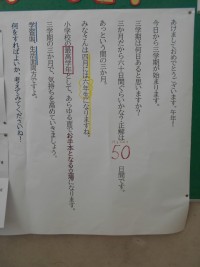 あけましておめでとうございます。今年も
今日から三学期が始まります。
三学期は何日あると思いますか？
三か月だから六十日間ぐらいかな？正解は
50日間です。
あっという間の三か月。
みなさんは四月には六年生になりますね。
小学校の最高学年として、あらゆる面でお手本となる立場になります。
三学期の三か月で、気持ちを高めていきましょう。
学習面、生活面両方ですよ。
何をすればよいか、考えてみてくださいね！